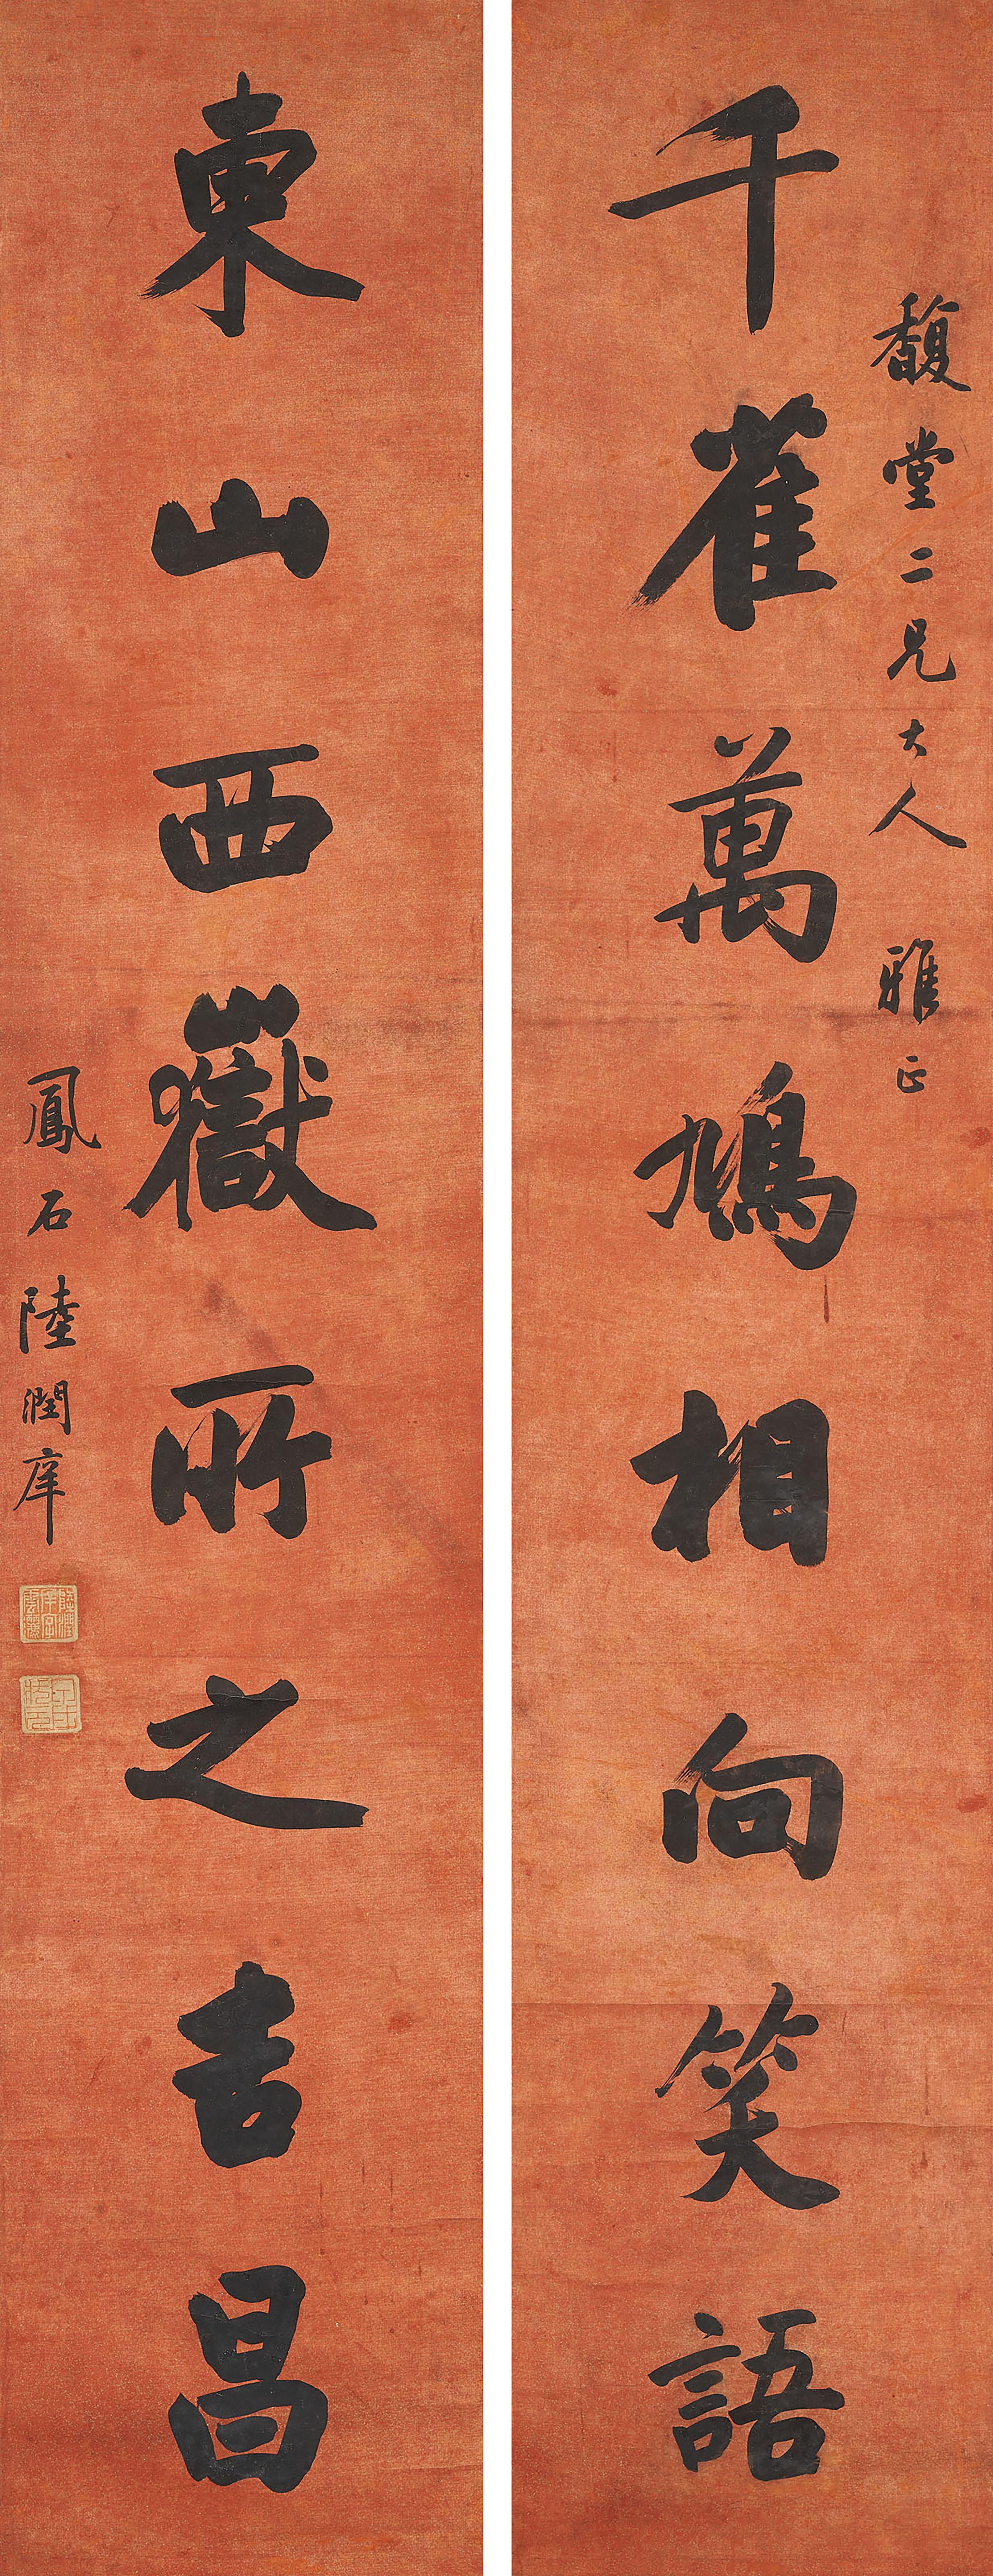 馥堂二兄大人 雅正
千雀萬鳩相向笑語
東山西嶽所之吉昌
鳳石陸潤庠